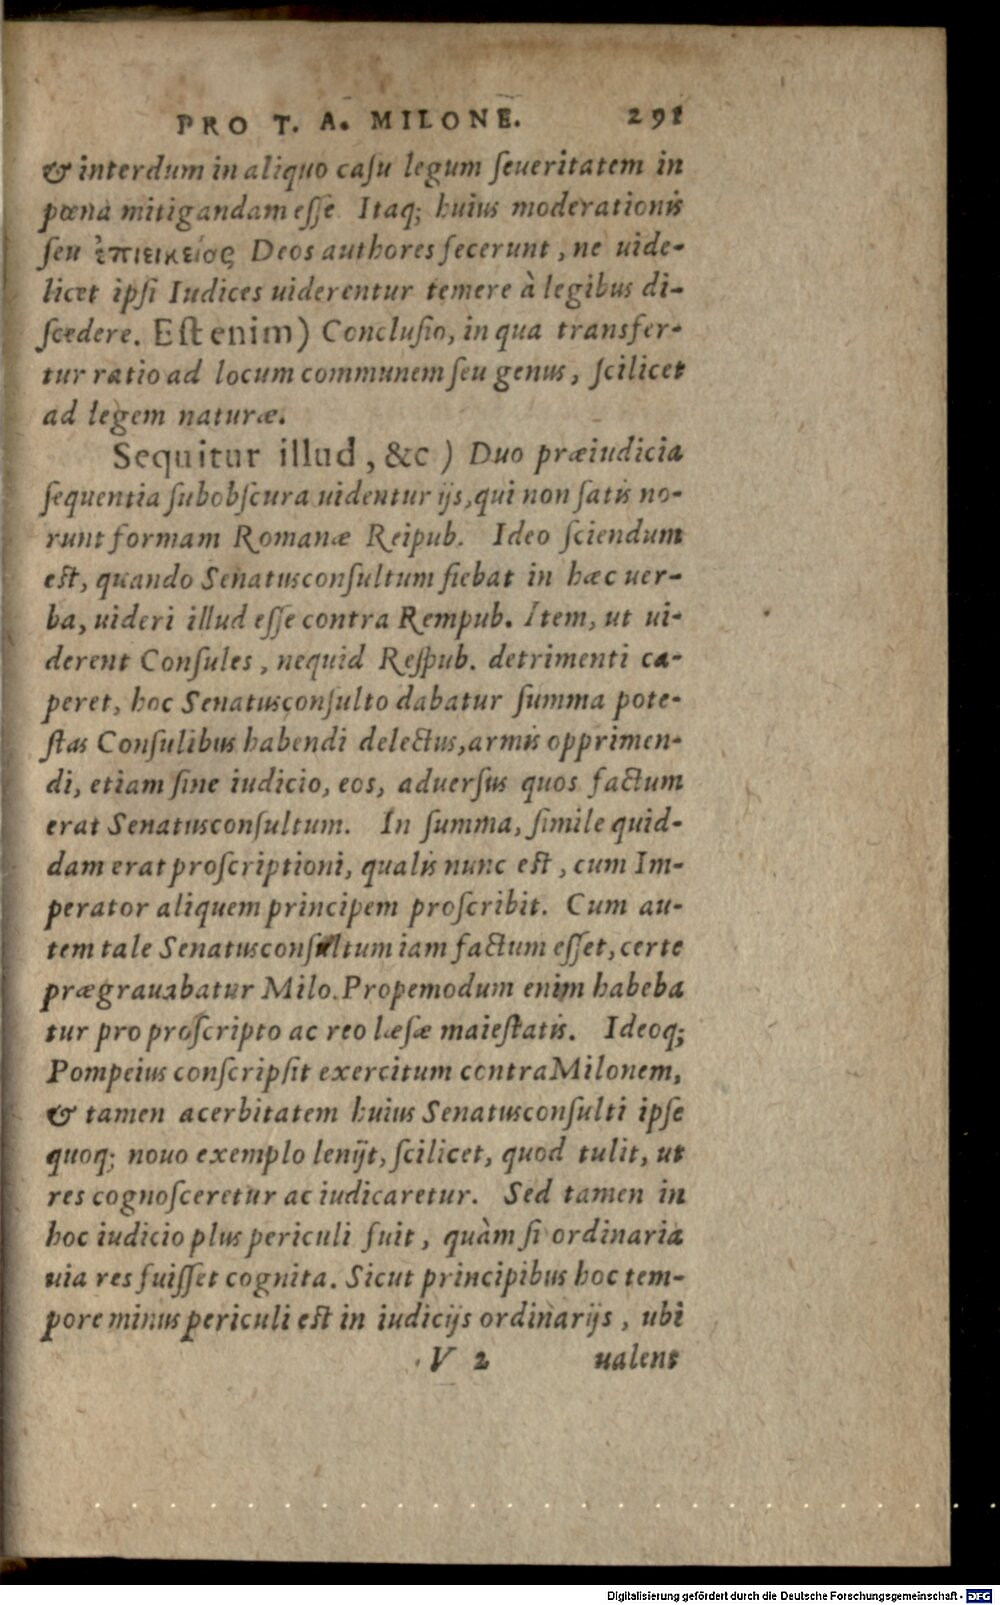 PRO T. A. MILONE. 291
& interdum in aliquo caſu legum ſeueritatem in
pœna mitigandam eſſe. Itaq; huius moderationis
ſeu ἐπιεικείας Deos authores fecerunt, ne uide-
licet ipſi Iudices uiderentur temere à legibus di-
ſcedere. Eſt enim) Concluſio, in qua transfer-
tur ratio ad locum communem ſeu genus, ſcilicet
ad legem naturæ.
Sequitur illud, &c) Duo præiudicia
ſequentia ſubobſcura uidentur ijs, qui non ſatis no-
runt formam Romanæ Reipub. Ideo ſciendum
eſt, quando Senatusconſultum fiebat in hæc uer-
ba, uideri illud eſſe contra Rempub. Item, ut ui-
derent Conſules, nequid Reſpub. detrimenti ca-
peret, hoc Senatusconſulto dabatur ſumma pote-
ſtas Conſulibus habendi delectus, armis opprimen-
di, etiam ſine iudicio, eos, aduerſus quos factum
erat Senatusconſultum. In ſumma, ſimile quid-
dam erat proſcriptioni, qualis nunc eſt, cum Im-
perator aliquem principem proſcribit. Cum au-
tem tale Senatusconſultum iam factum eſſet, certe
prægrauabatur Milo. Propemodum enim habeba
tur pro proſcripto ac reo læſæ maieſtatis. Ideoq;
Pompeius conſcripſit exercitum contra Milonem,
& tamen acerbitatem huius Senatusconſulti ipſe
quoq; nouo exemplo lenijt, ſcilicet, quod tulit, ut
res cognoſceretur ac iudicaretur. Sed tamen in
hoc iudicio plus periculi fuit, quàm ſi ordinaria
uia res fuiſſet cognita. Sicut principibus hoc tem-
pore minus periculi eſt in iudicijs ordinarijs, ubi
V 2 ualent
Digitalisierung gefördert durch die Deutsche Forschungsgemeinschaft - DFG